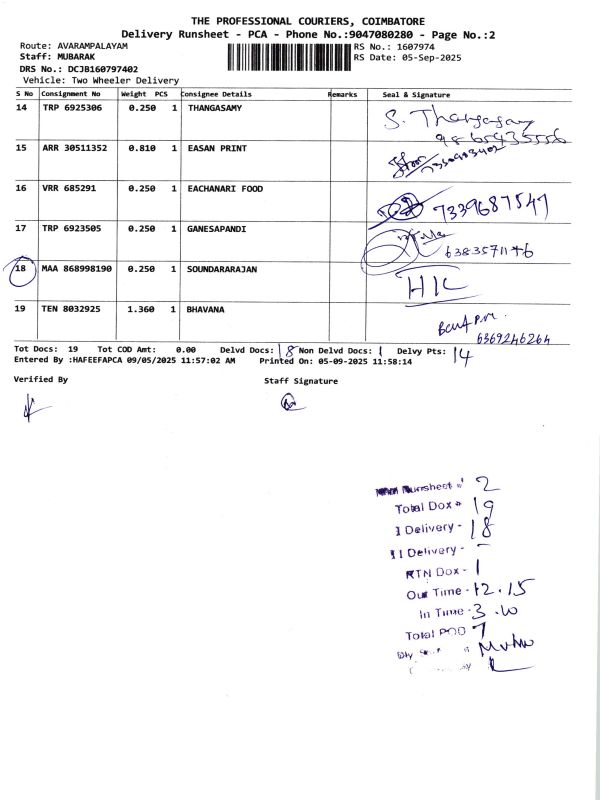 THE PROFESSIONAL COURIERS, COIMBATORE
Delivery Runsheet - PCA - Phone No.:9047080280 - Page No.:2
Route: AVARAMPALAYAM RS No.: 1607974
Staff: MUBARAK RS Date: 05-Sep-2025
DRS No.: DCJB160797402
Vehicle: Two Wheeler Delivery
S No Consignment No Weight PCS Consignee Details Remarks Seal & Signature
14 TRP 6925306 0.250 1 THANGASAMY S. Thangasamy
9865935556
15 ARR 30511352 0.810 1 EASAN PRINT
16 VRR 685291 0.250 1 EACHANARI FOOD 7339687547
17 TRP 6923505 0.250 1 GANESAPANDI
6383571146
18 MAA 868998190 0.250 1 SOUNDARARAJAN HIC
19 TEN 8032925 1.360 1 BHAVANA
6369246264
Tot Docs: 19 Tot COD Amt: 0.00 Delvd Docs: 18 Non Delvd Docs: 1 Delvy Pts: 14
Entered By :HAFEEFAPCA 09/05/2025 11:57:02 AM Printed On: 05-09-2025 11:58:14
Verified By Staff Signature
Runsheet # 2
Total Dox # 19
I Delivery - 18
II Delivery - -
RTN Dox - 1
Out Time - 12.15
In Time - 3.10
Total POD 7